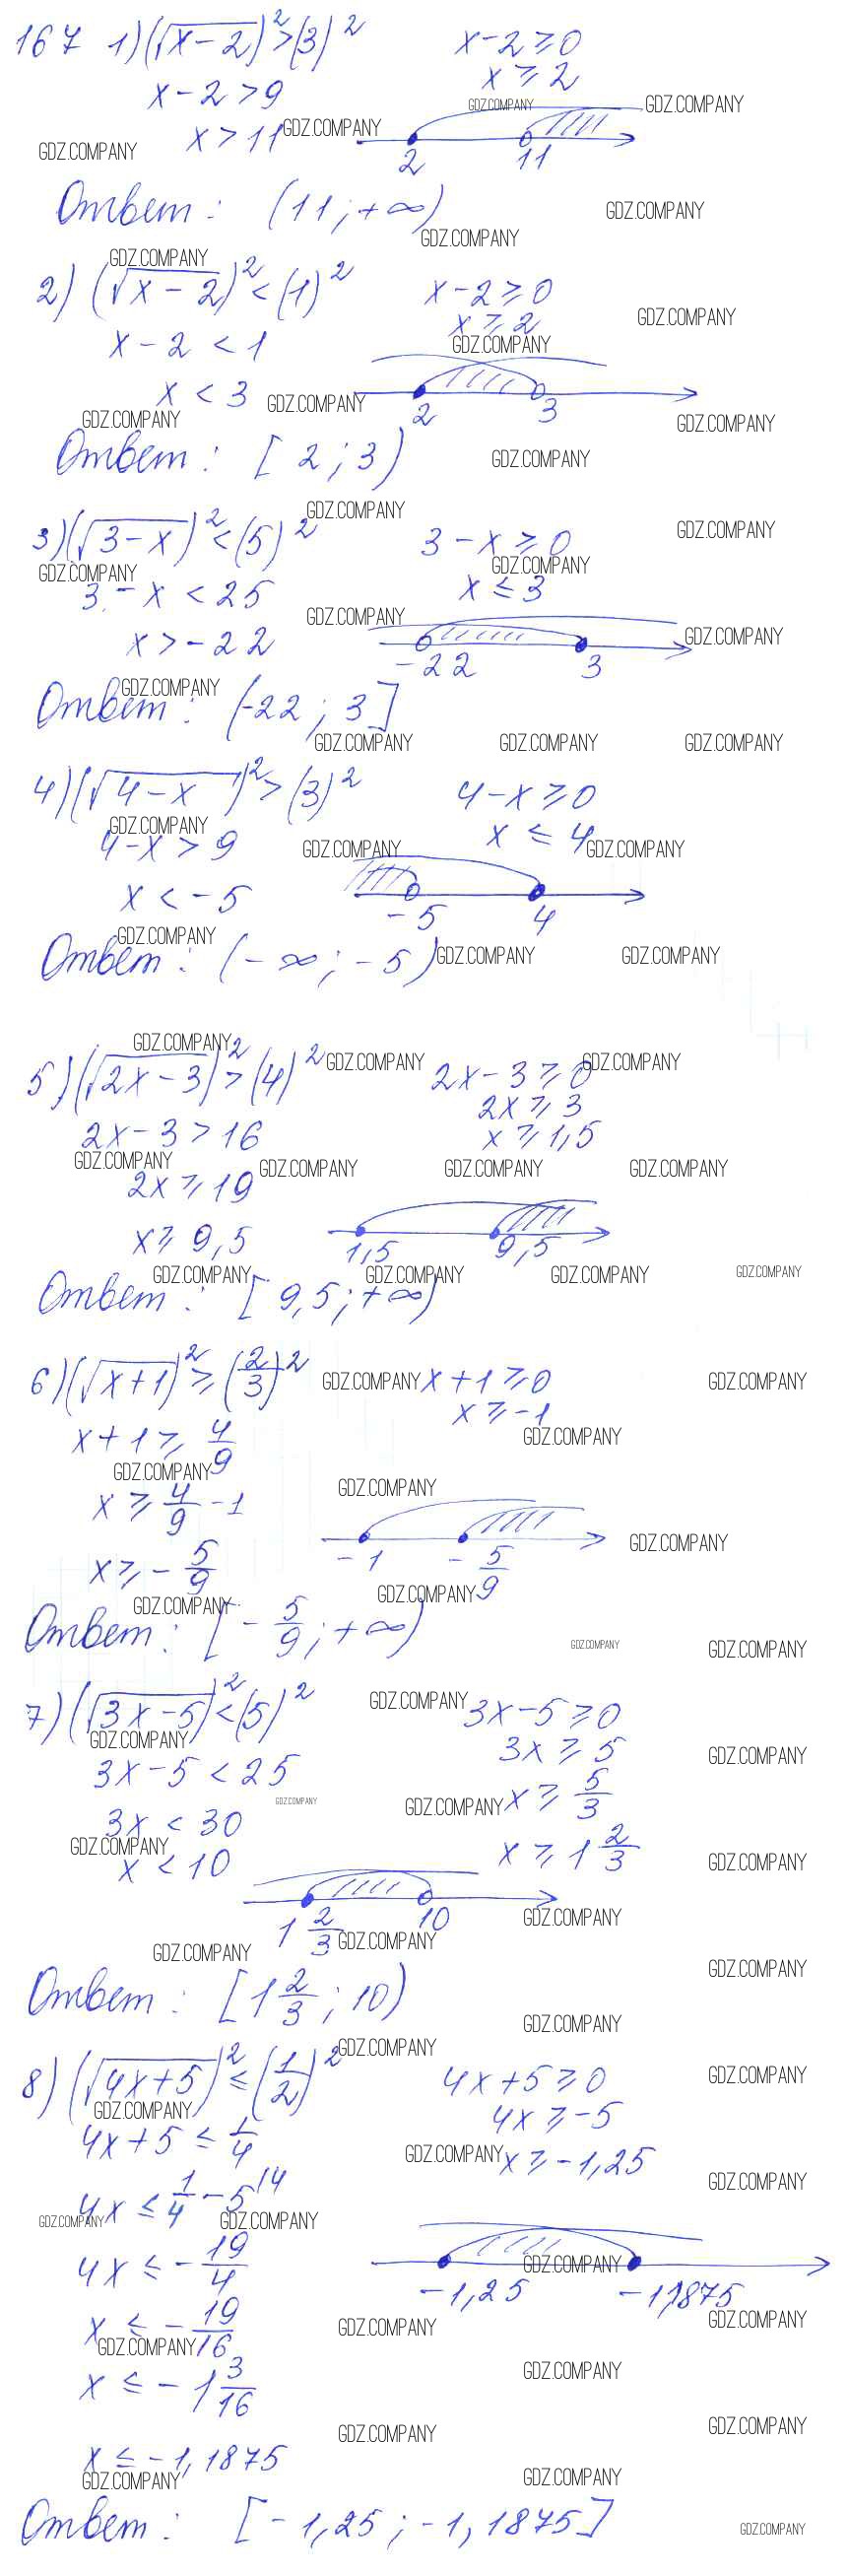 167 1) (√x-2)² > (3)² x-2≥0
x-2>9 x≥2
x>11
2 11
Ответ: (11; +∞)
2) (√x-2)² < (1)² x-2≥0
x≥2
x-2 <1
x < 3
2 3
Ответ: [2; 3)
3) (√3-x)² < (5)² 3-x≥0
3-x < 25 x≤3
x>-22
-22 3
Ответ: (-22; 3]
4) (√4-x)² > (3)² 4-x≥0
4-x>9 x≤4
x<-5
-5 4
Ответ: (-∞; -5)
5) (√2x-3)² > (4)² 2x-3≥0
2x≥3
2x-3>16 x≥1,5
2x≥19
x≥9,5
1,5 9,5
Ответ: [9,5; +∞)
6) (√x+1)² ≥ (2/3)² x+1≥0
x≥-1
x+1≥4/9
x≥4/9-1
x≥-5/9
-1 -5/9
Ответ: [-5/9; +∞)
7) (√3x-5)² < (5)² 3x-5≥0
3x≥5
3x-5<25
x≥5/3
3x<30
x<10 x≥1 2/3
1 2/3 10
Ответ: [1 2/3; 10)
8) (√4x+5)² ≤ (1/2)² 4x+5≥0
4x≥-5
4x+5≤1/4
x≥-1,25
4x≤1/4-5 /4
4x≤-19/4
-1,25 -1,1875
x≤-19/16
x≤-1 3/16
x≤-1,1875
Ответ: [-1,25; -1,1875]
GDZ.COMPANY